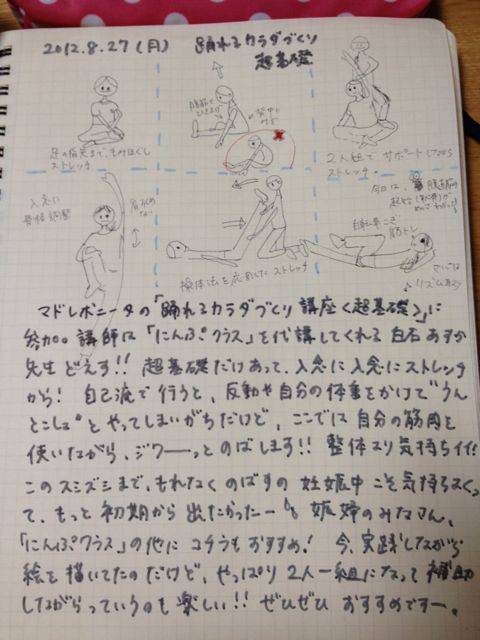 2012.8.27(月) 踊れるカラダづくり
超基礎
足の指先まで、もみほぐし
ストレッチ
腹筋で
ひきあげ
背中
2人組で サポートしながら
ストレッチ。
入念に
骨格調整
肩は
ない
操体法を応用した ストレッチ
今日は、腹直筋
自転車こぎ
筋トレ
さいごは
リズムあそび
マドレボニータの「踊れるカラダづくり講座<超基礎>」に
参加。講師は「にんぷクラス」を代講してくれる 白石あすか
先生どえす!! 超基礎だけあって、入念に入念にストレッチ
から! 自己流で行うと、反動や自分の体重をかけて“うん
とこしょ”とやってしまいがちだけど、ここでは自分の筋肉を
使いながら、ジワーーっとのばします!! 整体より気持ちイイ!
このスミズミまで、もれなくのばすの 妊娠中こそ気持ちよく
て、もっと初期から出たかったー 妊婦のみなさん、
「にんぷクラス」の他に コチラもおすすめ! 今、実践しながら
絵を描いてたのだけど、やっぱり2人一組になって補助
しながらっていうのも楽しい!! ぜひぜひ おすすめですー。